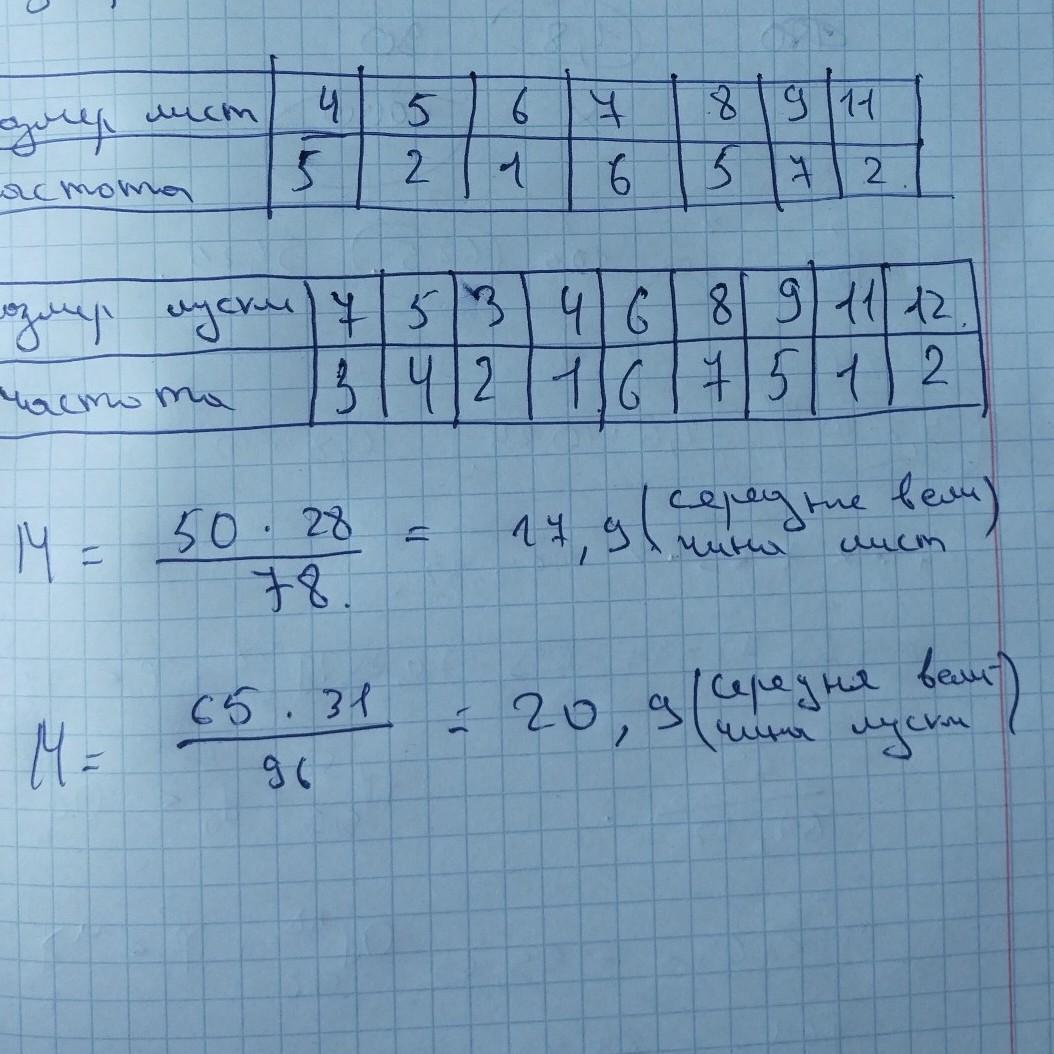 озмер лист 4 5 6 7 8 9 11
астота 5 2 1 6 5 7 2.
озмер луски 7 5 3 4 6 8 9 11 12.
частота 3 4 2 1 6 7 5 1 2
M = 50 · 28 / 78. = 17,9 (середнє вели
чина лист)
M = 65 · 31 / 96 = 20,9 (середня вели-
чина луски)